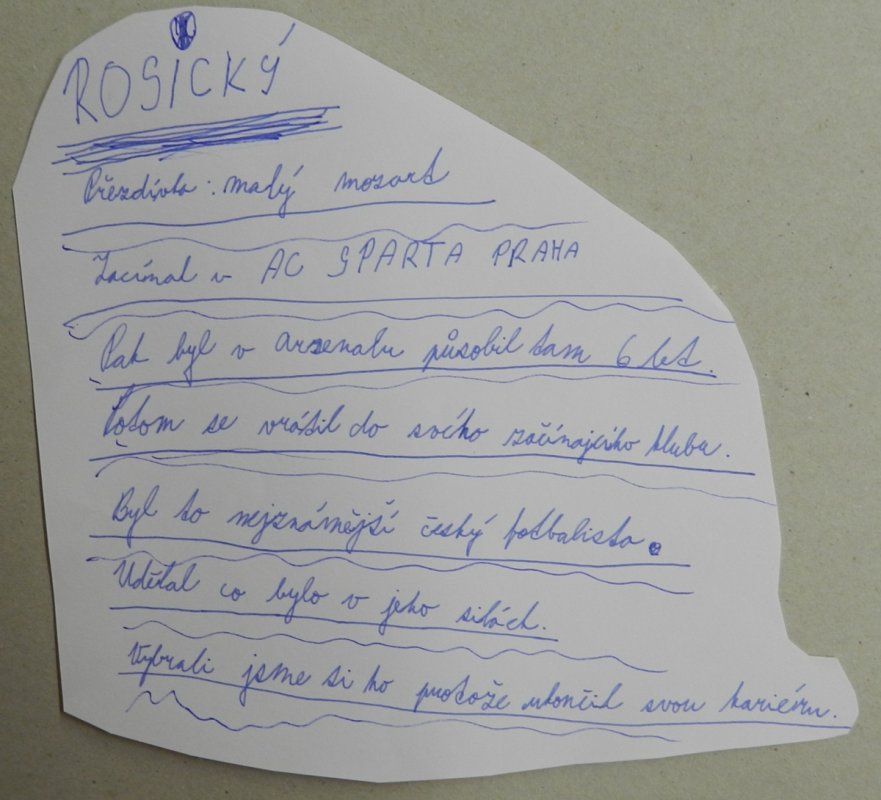 ROSICKÝ
Přezdívka: malý mozart
Zacínal v AC SPARTA PRAHA
Pak byl v arzenalu působil tam 6 let.
Potom se vrátil do svího začínajcího klubu.
Byl to nejznámnější český fotbalista.
Udělal co bylo v jeho silách.
Vybrali jsme si ho protože ukončil svou kariéru.